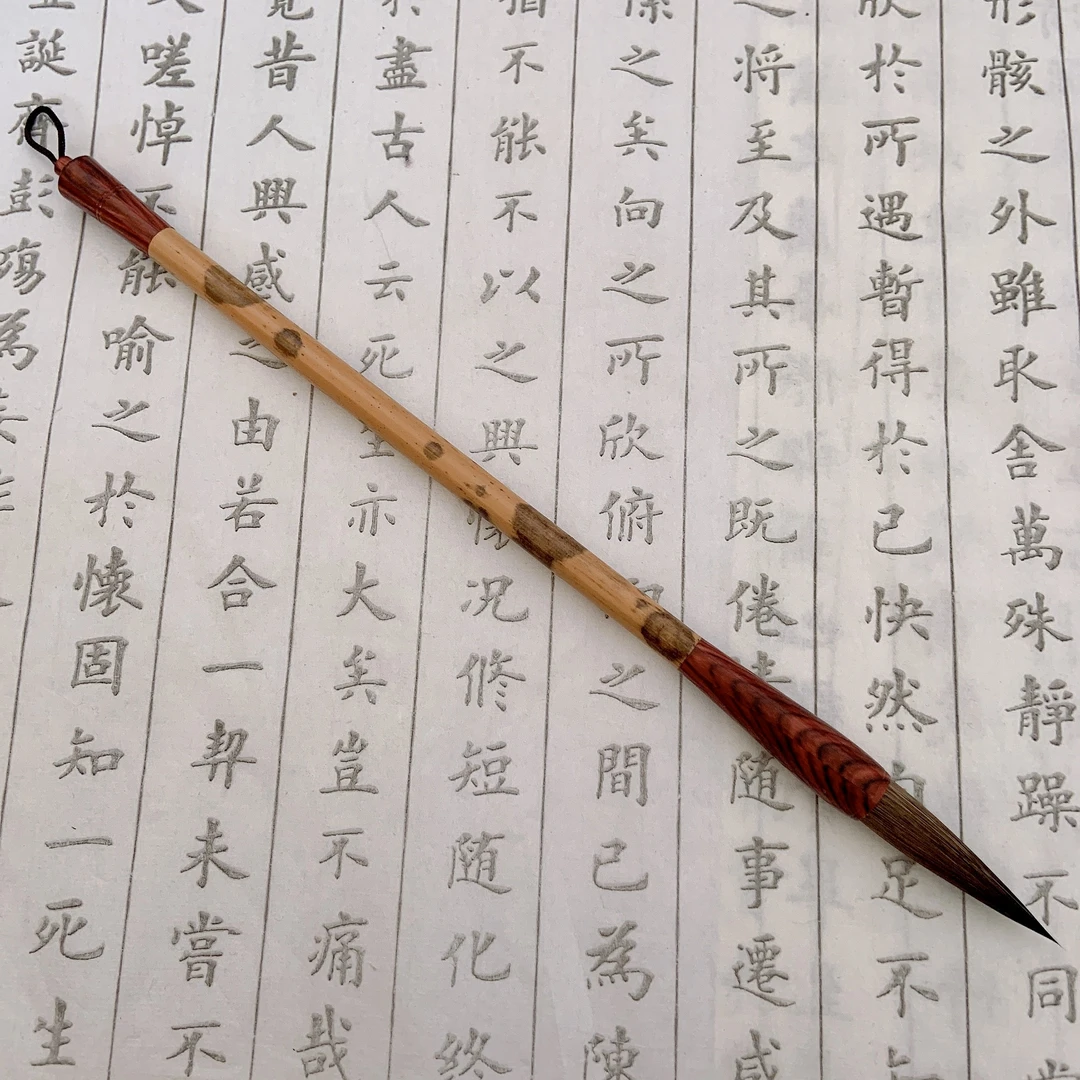 形骸之外雖取舍萬殊静躁不同
欣於所遇暫得於己快然足不
之将至及其所之既倦随事遷感
係之矣向之所欣俯之間已為陳
猶不能不以之興况修短随化終
於盡古人云死亦大矣豈不痛哉
覽昔人興感之由若合一契未嘗不
文嗟悼不能喻之於懷固知一死生
誕齊彭殤為